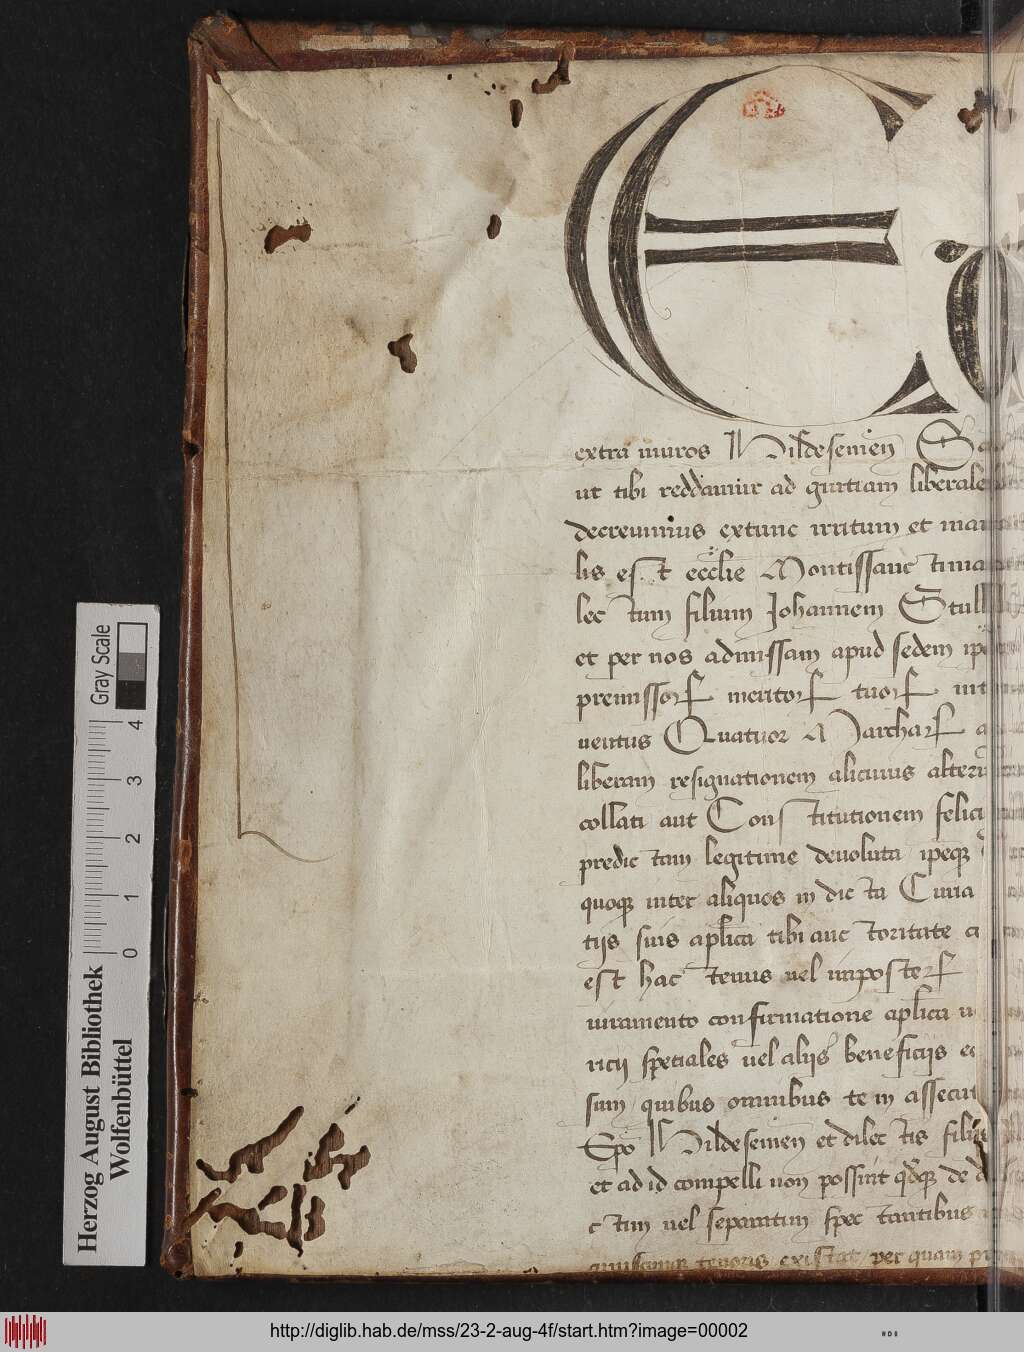 E
extra muros Hildesemen̄ Sa
ut tibi reddamur ad gratiam liberale
decreuimus extunc irritum et
lis est eccl̄ie Montissanc
lec tum filium Johannem Stull
et per nos admissam apud sedem ip̄
premissoꝝ meritoꝝ tuoꝝ
Quatuor Marcharꝝ
liberam resignationem alicuius alteri
collati aut Cons titutionem felici
predic tam legitime deuoluta ip̄eqꝫ
quoqꝫ inter aliquos in dic ta Curia
tijs suis apl̄ica tibi auc toritate
est hac tenus uel imposterꝝ
iuramento confirmatione apl̄ica
ricij spetiales uel alijs beneficijs
sum quibus omnibus te in assecut
Ep̄o Hildesemen̄ et dilec tis filijs
et ad id compelli non possint qd̄qꝫ de
c tim uel separatim spec tantibus
tenoris existat per quam
Gray Scale
4
3
2
1
0
Herzog August Bibliothek
Wolfenbüttel
http://diglib.hab.de/mss/23-2-aug-4f/start.htm?image=00002